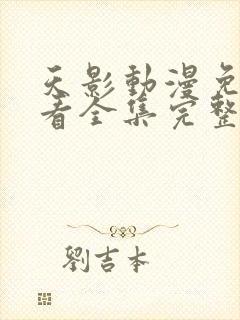 天影動漫免
看全集完整
劉吉本